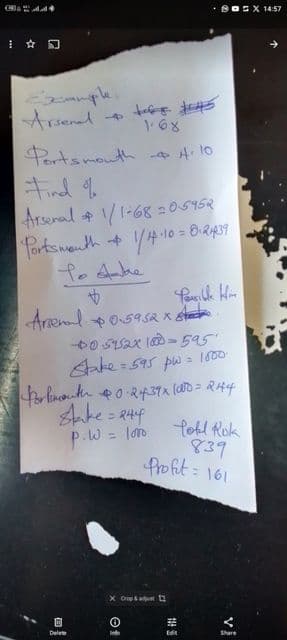 14:57
Example
Arsenal → 1.68
Portsmouth → 4.10
Find %
Arsenal → 1/1.68 = 0.5952
Portsmouth → 1/4.10 = 0.2439
To stake
Possible Win
Arsenal → 0.5952 x
→ 0.5952 x 1000 = 595
Stake = 595 pw = 1000
Portsmouth → 0.2439 x 1000 = 244
Stake = 244
p.w = 1000
Total Risk
839
Profit = 161
Crop & adjust
Delete Info Edit Share